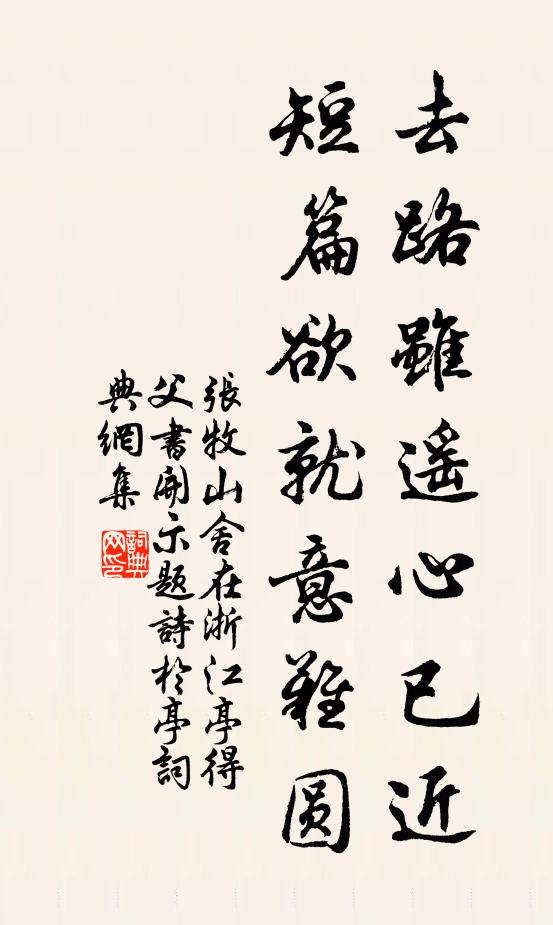 去路雖遥心已近
短篇欲就意難圆
張牧山舍在浙江亭得
父書開示題詩於亭詞
典網集
詞典
网印